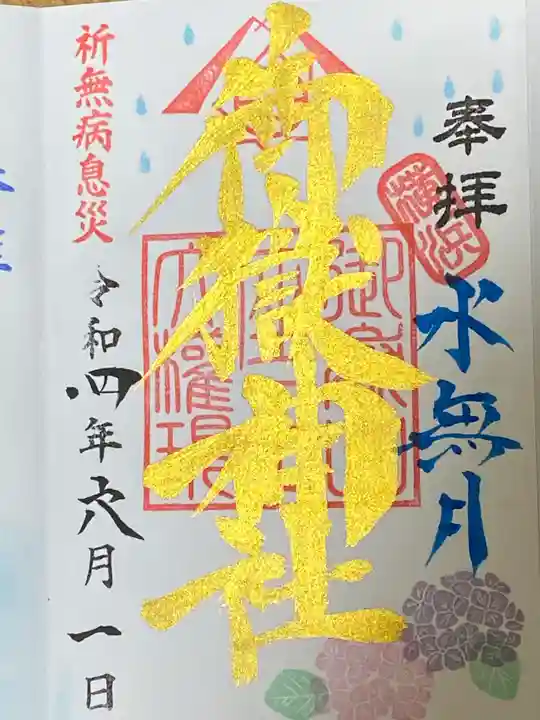 奉拝
横浜
水無月
御嶽神社
祈無病息災
令和四年六月一日